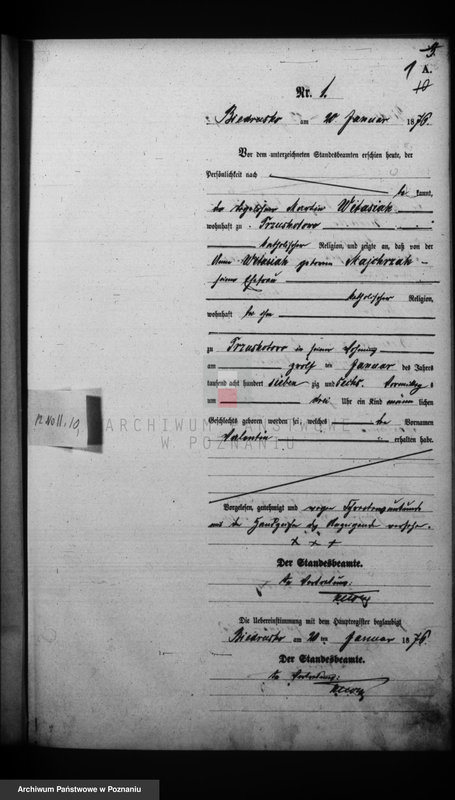 9.
1 A.
10
Nr. 1.
Biedrusko am 20 Januar 1876.
Vor dem unterzeichneten Standesbeamten erschien heute, der
Persönlichkeit nach
be kannt,
der Tagelöhner Martin Witasiak
wohnhaft zu Trzuskotowo
katholischer Religion, und zeigte an, daß von der
Anna Witasiak geborene Majchrzak
seiner Ehefrau
katholischer Religion,
wohnhaft bei ihm
zu Trzuskotowo in seiner Wohnung
am zwölf ten Januar des Jahres
tausend acht hundert sieben zig und sechs Vormittags
um drei Uhr ein Kind männ lichen
Geschlechts geboren worden sei, welches die Vornamen
Valentin erhalten habe.
Vorgelesen, genehmigt und wegen Schreibensunkunde
mit der Handzeichen des Anzeigenden versehen.
+ + +
Der Standesbeamte.
In Vertretung:
Die Uebereinstimmung mit dem Hauptregister beglaubigt
Biedrusko am 20 ten Januar 1876.
Der Standesbeamte.
In Vertretung:
ARCHIWUM PAŃSTWOWE
W POZNANIU
Archiwum Państwowe w Poznaniu